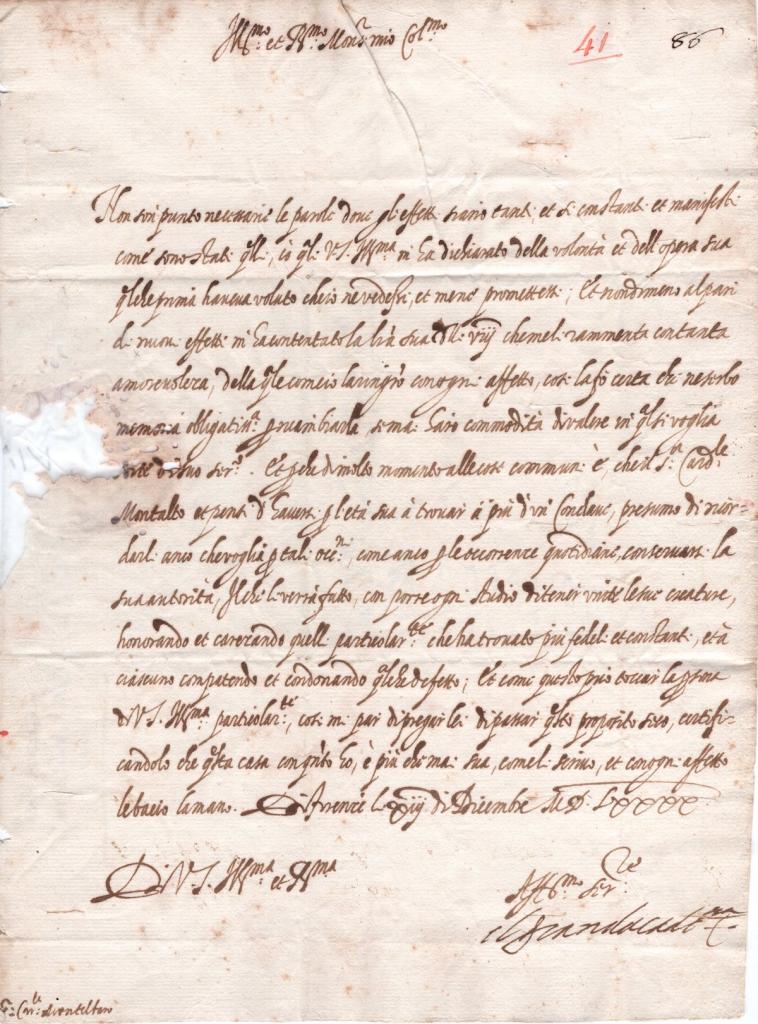 Ill.mo et R.mo Mons.r mio Col.mo
41
86
Non son punto necessarie le parole dove gl'effetti siano tanti et sì constanti et manifesti
come sono stati q.lli, co q.li V.S. Ill.ma m'ha dichiarato della volontà et dell'opera sua
q.lche prima haveva voluto ch'io ne vedessi, et meno promettetti; Et nondimeno al pari
di nuovi effetti m'ha contentato la l.ra sua delli viij che me li rammenta con tanta
amorevolezza, della q.le com'io la ringr.o con ogni affetto, così la fo certa che ne serbo
memoria obligatiss.a p ricambiarla, se mai harò commodità di valere in q.lsivoglia
di suo ser.o. Et p.che di molto momento alle cose communi è, che il S.r Card.le
Montalto et pensi d'havers p l'età sua à trovar à più d'un Conclave, presumo di ricor-
darli anco che voglia p tali occ.ni, come anco p le occorrenze quotidiane, conservarsi la
sua autorità, Il che li verrà fatto, con porre ogni studio di tener unite le sue creature,
honorando et carezzando quelli particolar.te che ha trovato più fedeli et constanti, et à
ciascuno compatendo et condonando q.lche difetto; Et come questo può toccar la p.sona
di V.S. Ill.ma particolar.te, così mi par di pregarla di passar q.sto proposito seco, certifi-
candolo che q.sta casa con q.nto ho, è più che mai sua, come li scrivo, et con ogni affetto
le bacio la mano. Di Firenze li xiij di Dicembre M.D.LXXXX
Di V.S. Ill.ma et R.ma
Aff.mo Ser.re
il Gran duca di T.na
S.r Car.le